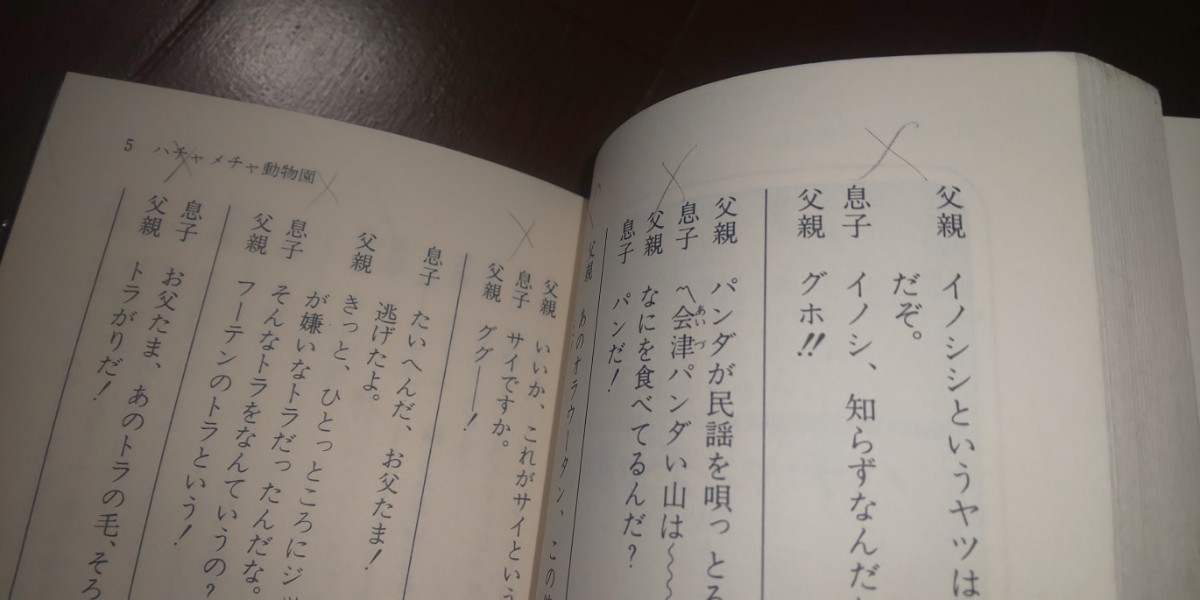 父親 イノシシというヤツは
だぞ。
息子 イノシ、知らずなんだ
父親 グホ!!
父親 パンダが民謡を唄っとる
息子 〽会津パンダい山は〜〜
あいづ
父親 なにを食べてるんだ?
息子 パンだ!
父親 あのオラウータン、この
父親 いいか、これがサイという
息子 サイですか。
父親 ググ——!
息子 たいへんだ、お父たま!
逃げたよ。
父親 きっと、ひとっところにジ
が嫌いなトラだったんだな。
息子 そんなトラをなんていうの?
父親 フーテンのトラという!
息子 お父たま、あのトラの毛、そろ
父親 トラがりだ!
5 ハチャメチャ動物園